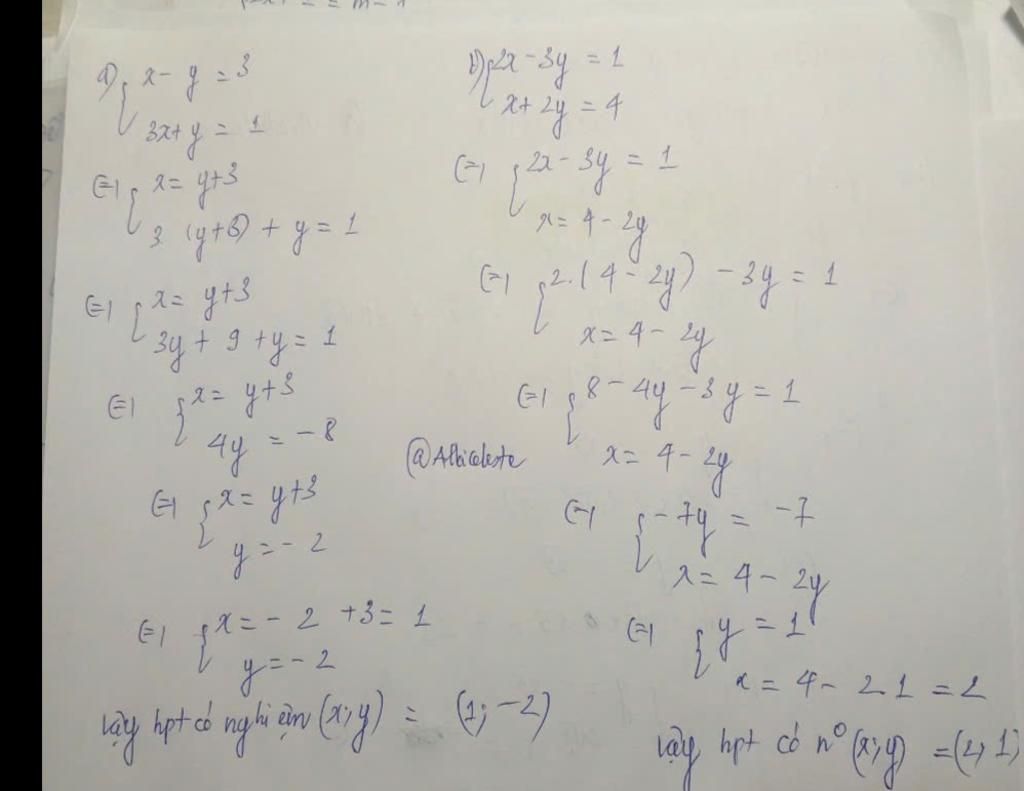 a) { x - y = 3
3x + y = 1
<=> { x = y+3
3. (y+3) + y = 1
<=> { x = y+3
3y + 9 + y = 1
<=> { x = y+3
4y = -8
<=> { x = y+3
y = -2
<=> { x = -2 +3 = 1
y = -2
Vậy hpt có nghiệm (x;y) = (1; -2)
b) { 2x - 3y = 1
x + 2y = 4
<=> { 2x - 3y = 1
x = 4 - 2y
<=> { 2.(4 - 2y) - 3y = 1
x = 4 - 2y
<=> { 8 - 4y - 3y = 1
x = 4 - 2y
@Albiceleste
<=> { -7y = -7
x = 4 - 2y
<=> { y = 1
x = 4 - 2.1 = 2
Vậy hpt có n⁰ (x;y) = (2; 1)